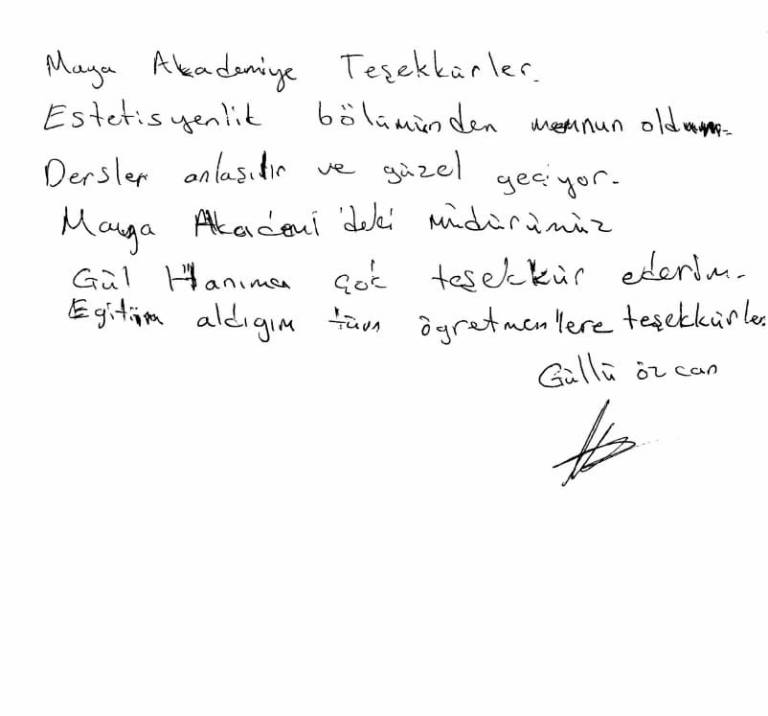 Maya Akademiye Teşekkürler.
Estetisyenlik bölümünden memnun oldum.
Dersler anlaşılır ve güzel geçiyor.
Maya Akademi'deki müdürümüz
Gül Hanıma çok teşekkür ederim.
Egitim aldıgım tüm ögretmenlere teşekkürler.
Güllü özcan